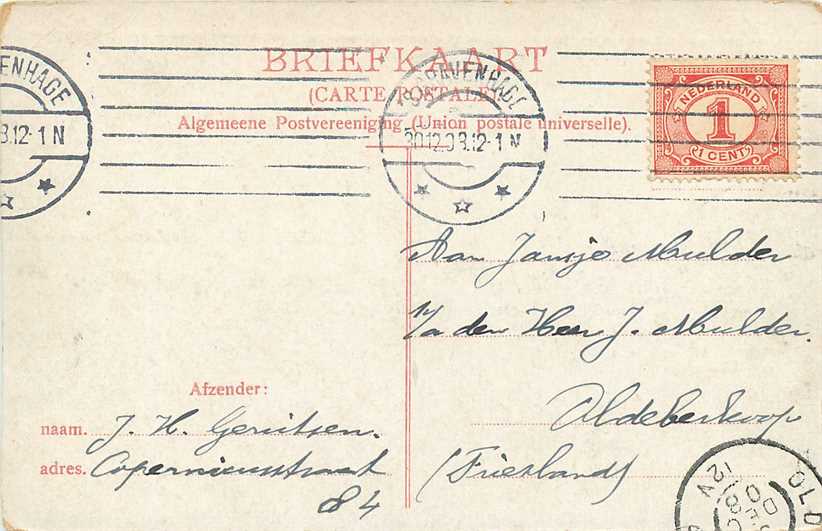 BRIEFKAART
(CARTE POSTALE)
Algemeene Postvereeniging (Union postale universelle).
ENHAGE
3.12-1 N
'S GRAVENHAGE
30.12.08.12-1 N
NEDERLAND
1
1 CENT
Aan Jansje Mulder
p/a den Heer J. Mulder.
Oldeberkoop
(Friesland)
Afzender:
naam. J. H. Gerritsen.
adres. Copernicusstraat
84
OLD
12V